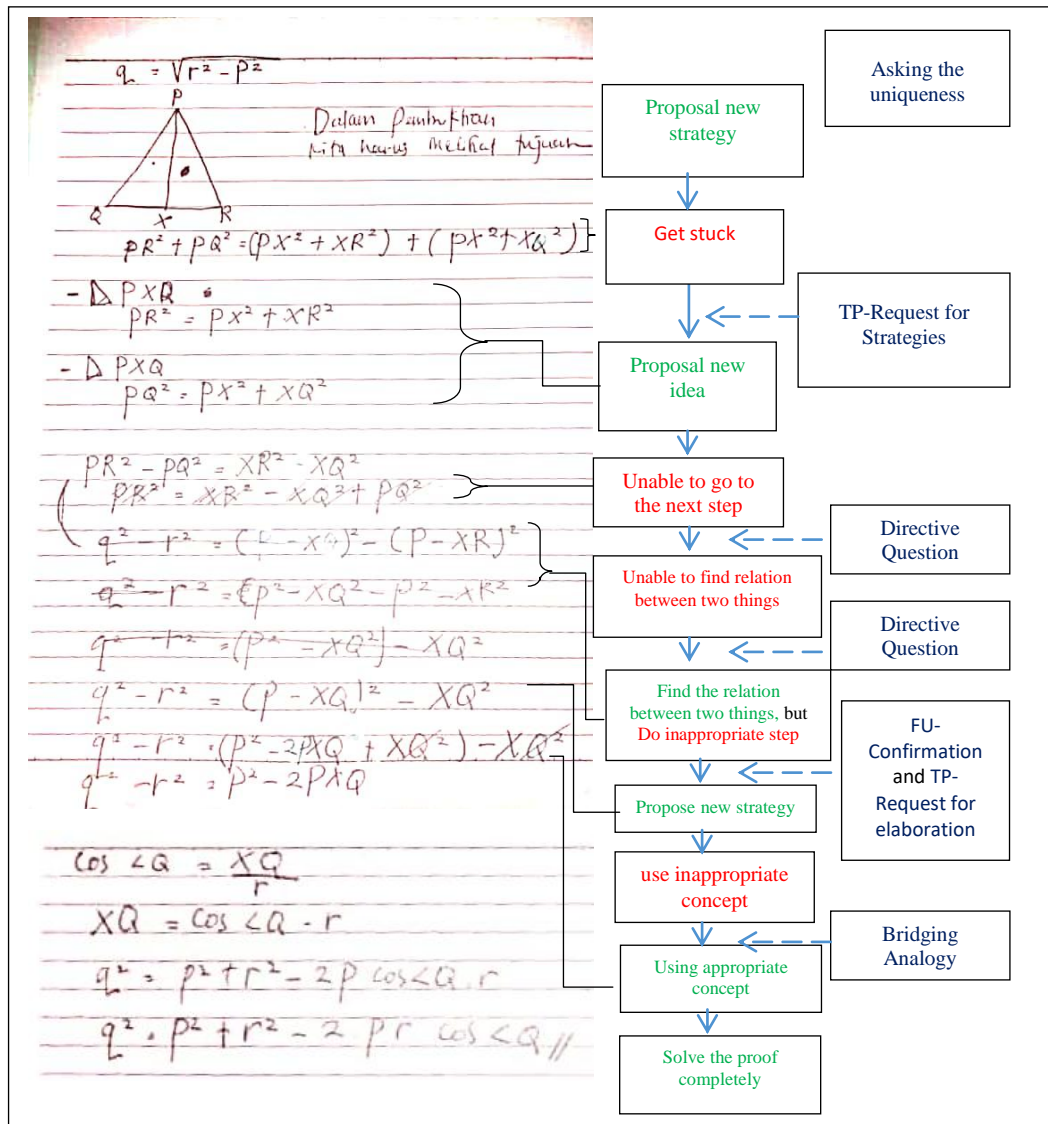 q = √r² - p²
P
Q X R
Dalam
kita harus melihat tujuan
PR² + PQ² = (PX² + XR²) + (PX² + XQ²)
- Δ PXR
PR² = PX² + XR²
- Δ PXQ
PQ² = PX² + XQ²
PR² - PQ² = XR² - XQ²
PR² = XR² - XQ² + PQ²
q² - r² = (P - XQ)² - (P - XR)²
q² - r² = (p² - XQ² - p² - XR²
q² - r² = (p² - XQ²) - XQ²
q² - r² = (p - XQ)² - XQ²
q² - r² = (p² - 2PXQ + XQ²) - XQ²
q² - r² = p² - 2PXQ
cos ∠Q = XQ
r
XQ = cos ∠Q . r
q² = p² + r² - 2p cos∠Q . r
q² = p² + r² - 2 pr cos ∠Q //
Proposal new
strategy
Get stuck
Proposal new
idea
Unable to go to
the next step
Unable to find relation
between two things
Find the relation
between two things, but
Do inappropriate step
Propose new strategy
use inappropriate
concept
Using appropriate
concept
Solve the proof
completely
Asking the
uniqueness
TP-Request for
Strategies
Directive
Question
Directive
Question
FU-
Confirmation
and TP-
Request for
elaboration
Bridging
Analogy